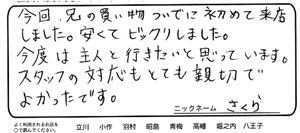 今回、兄の買い物ついでに初めて来店
しました。安くてビックリしました。
今度は主人と行きたいと思っています。
スタッフの対応もとても親切で
よかったです。
ニックネーム さくら
よく利用されるお店を
○で囲んでください。 立川 小作 羽村 昭島 青梅 高幡 堀之内 八王子